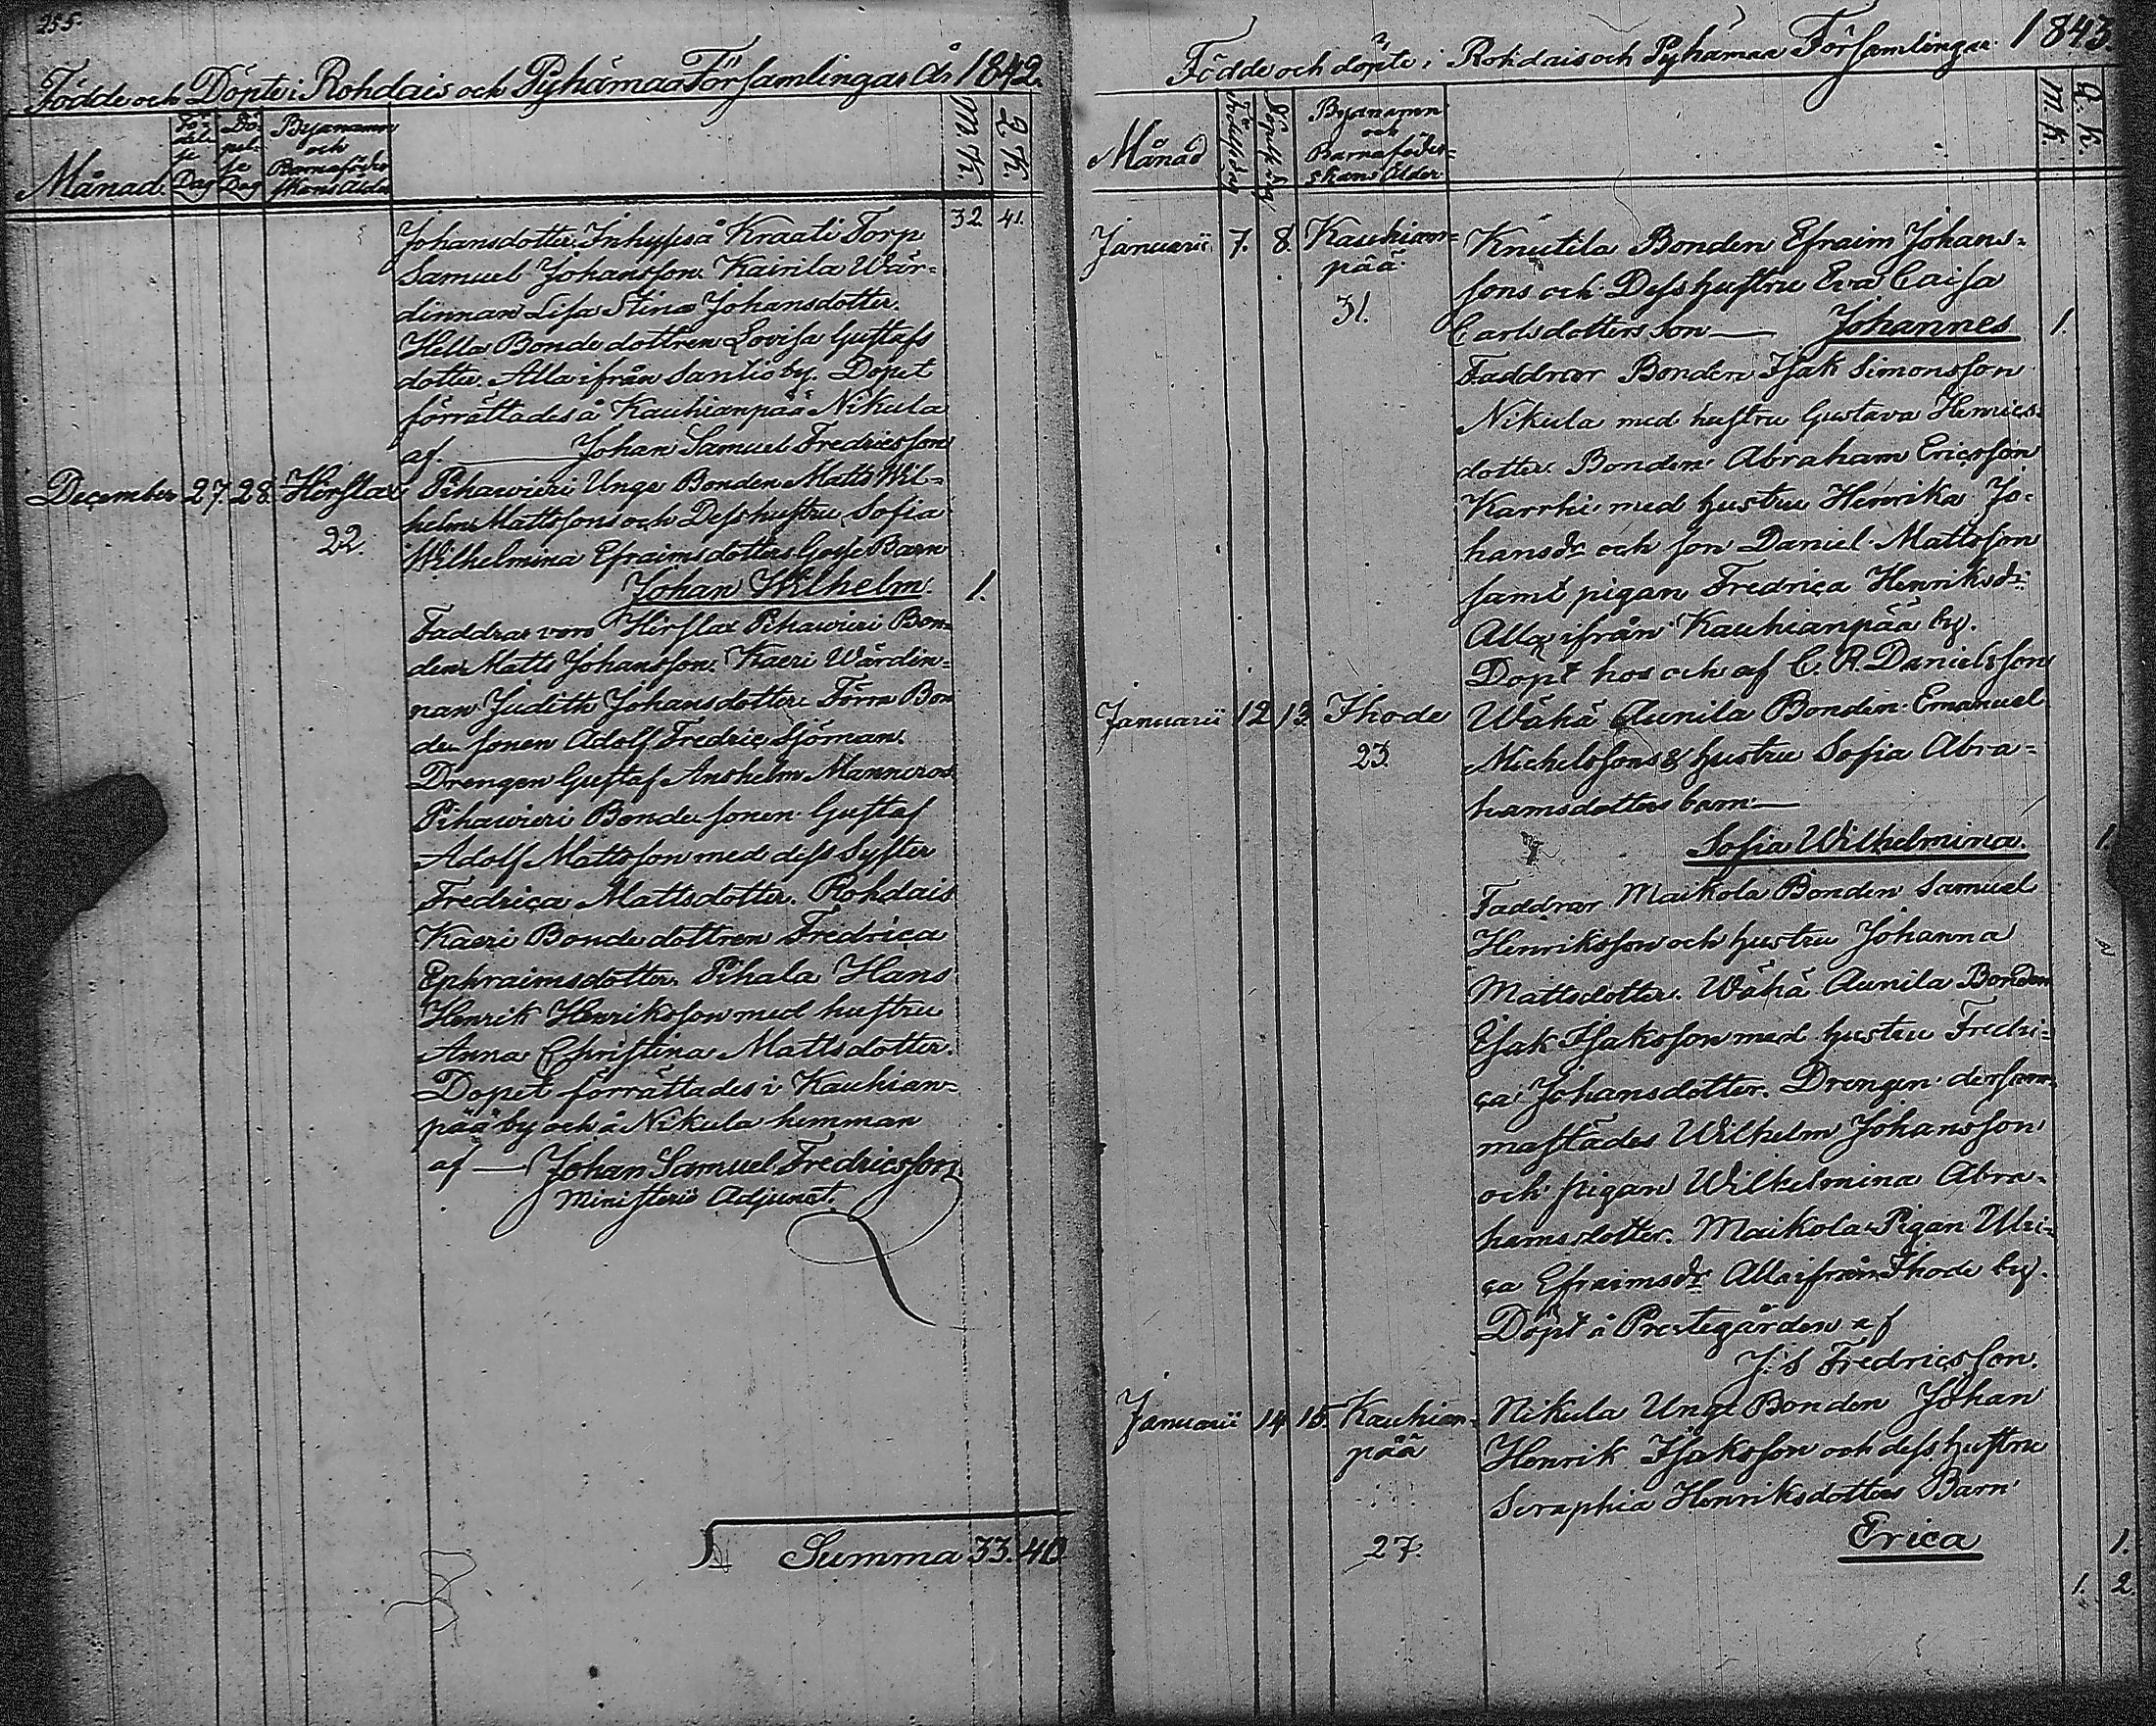 255.
Födde och Döpte i Rohdais och Pyhämaa Församlingar År 1842.
Månad.
Fö-
delse
Dag
Dö-
pel-
se
Dag
Byanamn
och
Barnaföder-
skans Ålder
M. K.
Q. K.
32 41.
Johansdotter. Inhyses å Kraati Torp
Samuel Johansson. Kairila Wär-
dinnan Lisa Stina Johansdotter.
Hella Bonde dottren Lovisa Gustafs
dotter. Alla ifrån Santio by. Dopet
förrättades å Kauhianpää Nikula
af. Johan Samuel Fredricsson
December 27. 28. Hirslax
22.
Pihawieri Unge Bonden Matts Wil-
helm Mattssons och Dess hustru Sofia
Wilhelmina Efraimsdotters Gosse Barn
Johan Wilhelm. 1.
Faddrar voro Hirslax Pihawieri Bon-
den Matts Johansson. Kaeri Wärdin-
nan Judith Johansdotter. Förra Bon
de sonen Adolf Fredric Sjöman.
Drengen Gustaf Anshelm Manneros
Pihawieri Bonde sonen Gustaf
Adolf Mattsson med dess Syster
Fredrica Mattsdotter. Rohdais
Kaeri Bonde dottren Fredrica
Ephraimsdotter. Pihala Hans
Henrik Henriksson med hustru
Anna Christina Mattsdotter.
Dopet förrättades i Kauhian-
pää by och å Nikula hemman
af — Johan Samuel Fredricsson
Ministerii Adjunct.
Summa 33. 40.
Födde och döpte i Rohdais och Pyhämaa Församlingar 1843.
Månad
Födelsedag
Döpelsedag
Byanamn
och
Barnaföder-
skans Ålder
M. K.
Q. K.
Januarii 7. 8. Kauhian-
pää
31.
Knutila Bonden Efraim Johans-
sons och Dess hustru Eva Caisa
Carlsdotters son — Johannes 1.
Faddrar Bonden Isak Simonsson
Nikula med hustru Gustava Henrics-
dotter. Bonden Abraham Ericsson
Karrhi med hustru Henrika Jo-
hansdr och son Daniel Mattsson
samt pigan Fredrica Henriksdr
Alla ifrån Kauhianpää by.
Döpt hos och af C. R. Danielsson
Januarii 12 13. Ihode
23.
Wähä Aunila Bonden Emanuel
Michelssons & hustru Sofia Abra-
hamsdotters barn —
Sofia Wilhelmina. 1.
Faddrar Maikola Bonden Samuel
Henriksson och hustru Johanna
Mattsdotter. Wähä Aunila Bonden
Isak Isaksson med hustru Fredri-
ca Johansdotter. Drengen dersam-
mastädes Wilhelm Johansson
och pigan Wilhelmina Abra-
hamsdotter. Maikola Pigan Ulri-
ca Efraimsdr Alla ifrån Ihode by.
Döpt å Prestegården af
J. S Fredricsson.
Januarii 14 15. Kauhian-
pää
27.
Nikula Unge Bonden Johan
Henrik Isaksson och dess hustru
Seraphia Henriksdotters Barn
Erica 1.
1. 2.